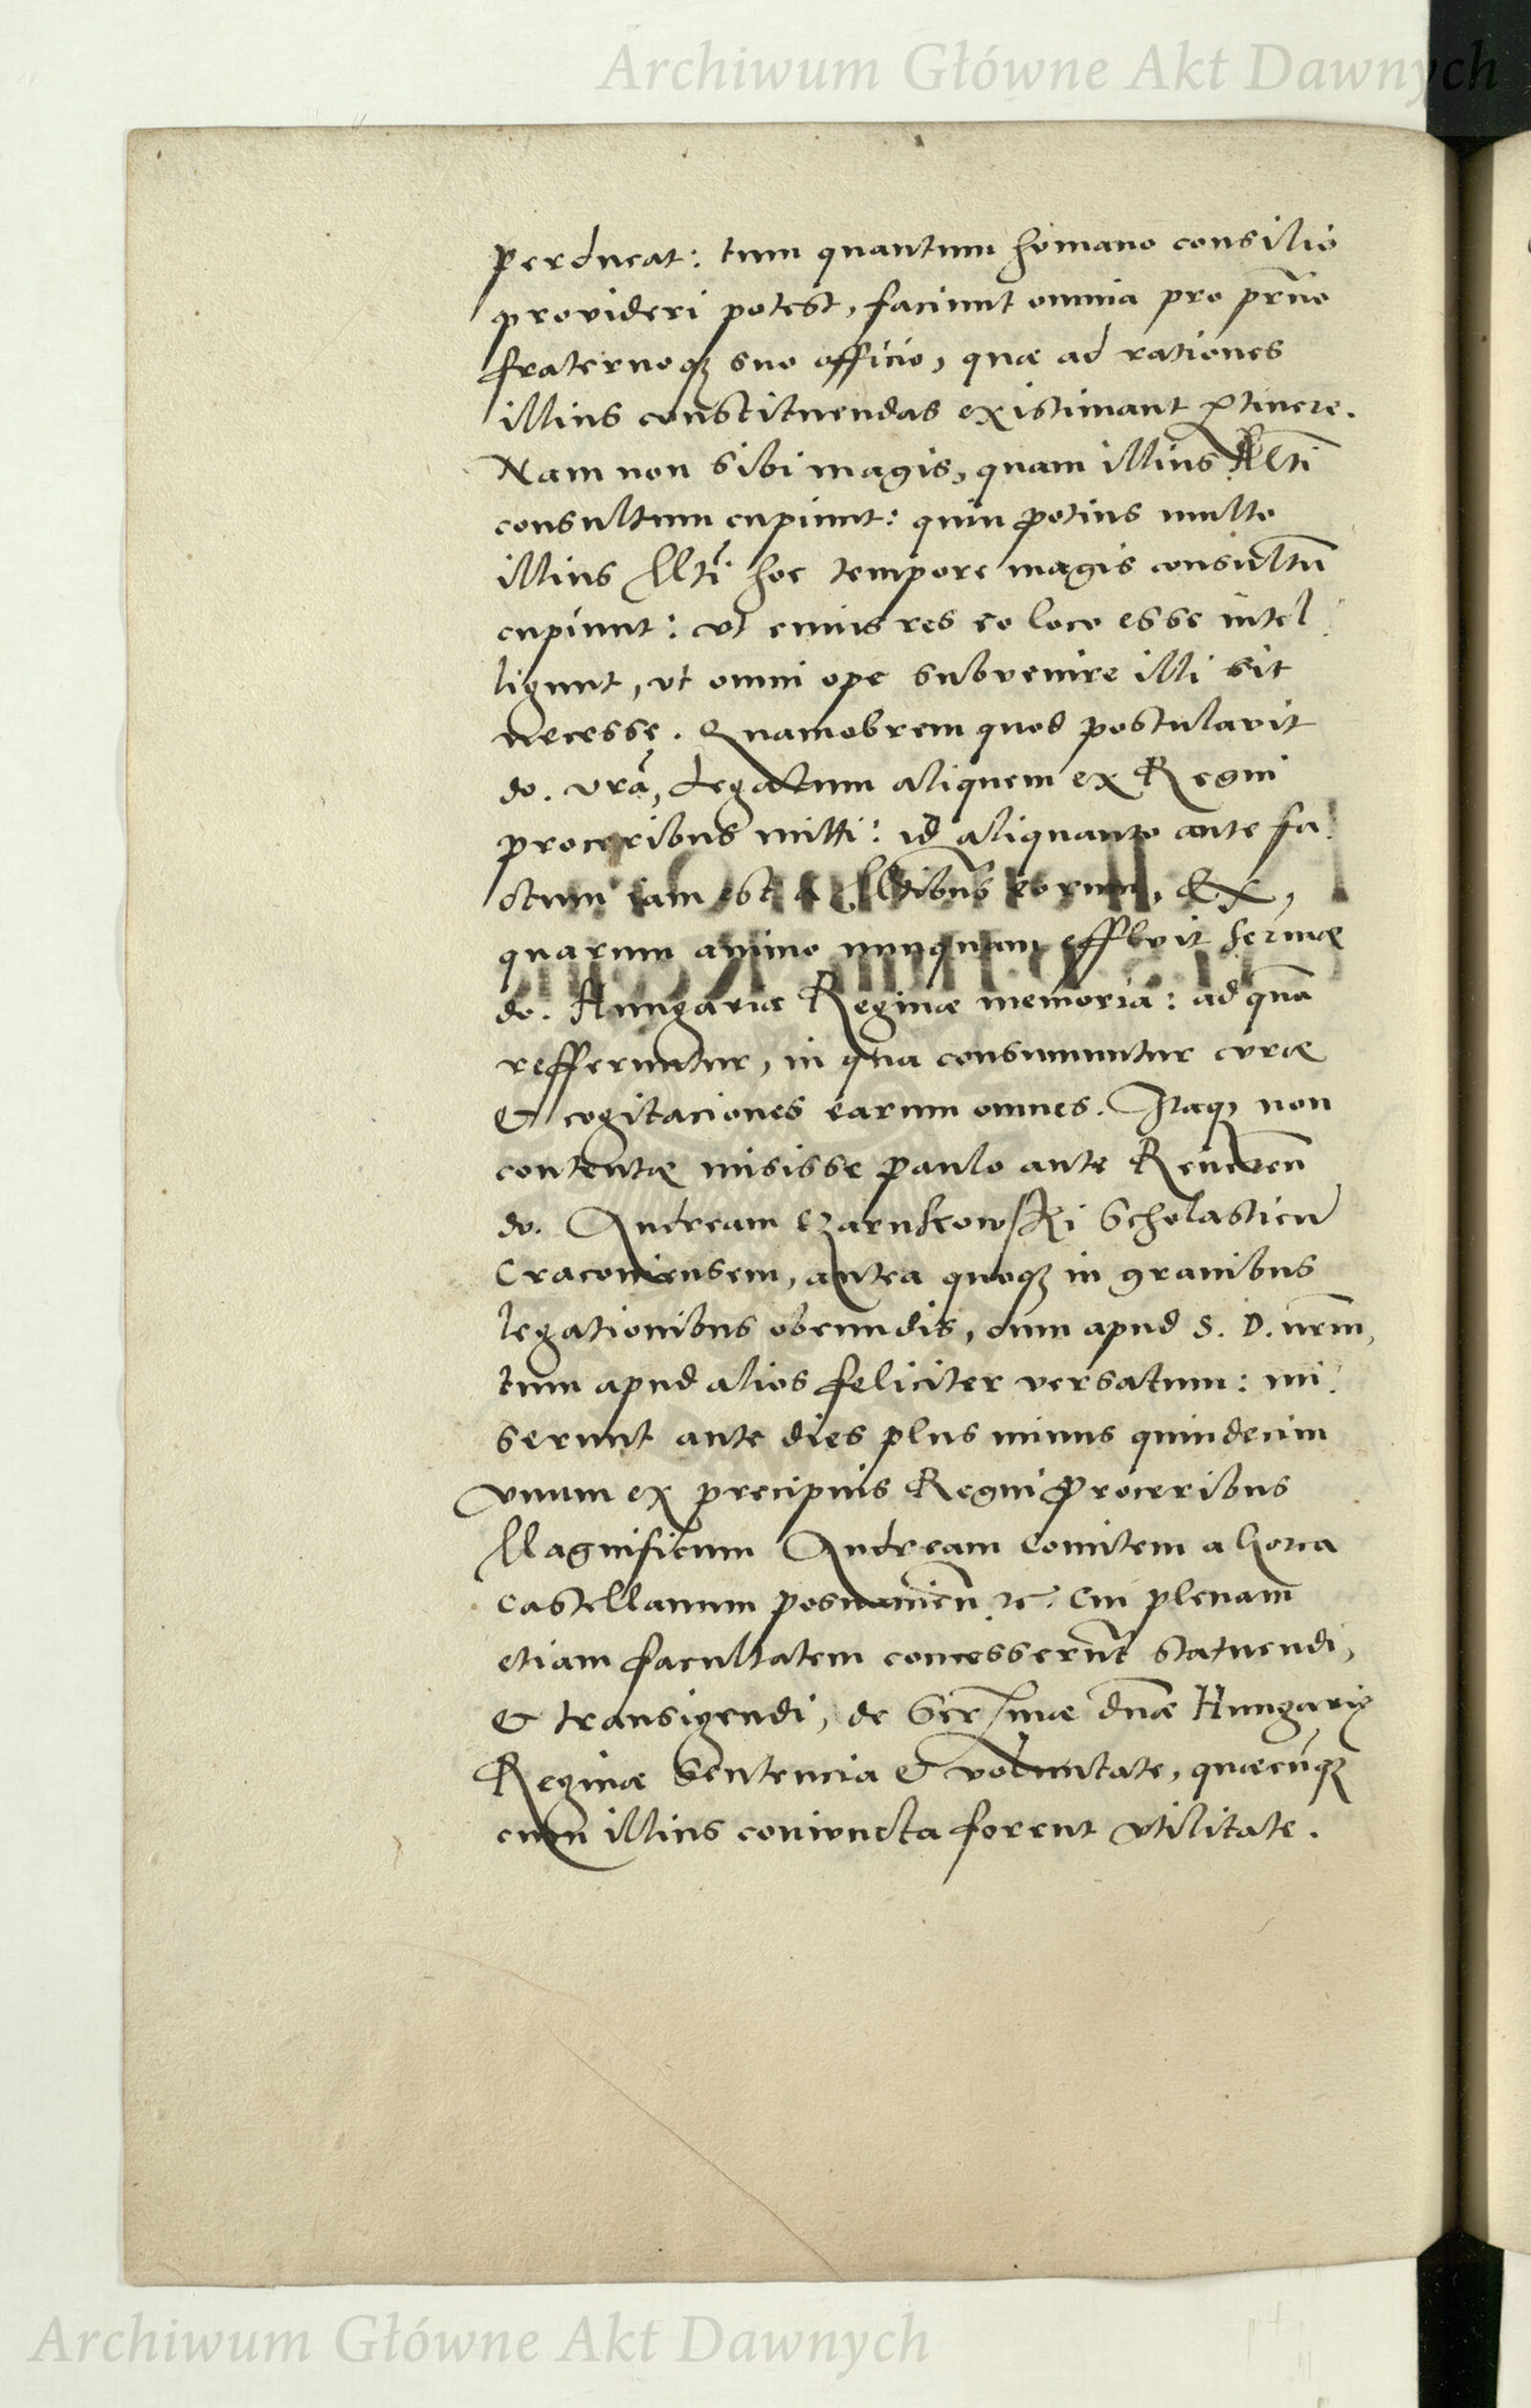 Archiwum Główne Akt Dawnych
perducat: tum quantum homano consilio
provideri potest, faciunt omnia pro pr̃no
fraternoqȝ suo officio, quæ ad rationes
illius constituendas existimant ꝑtinere.
Nam non sibi magis, quam illius Mti
consultum cupiunt: quin potius multo
illius Mti hoc tempore magis consultũ
cupiunt: cui enim res eo loco esse intel
ligunt, ut omni ope subvenire illi sit
necesse. Quamobrem quod postulavit
do. vrã, Legatum aliquem ex Regni
proceribus mitti: id aliquanto ante fa
ctum iam est a Mtibus eorum, Ex,
quarum animo nunquam effluit Sermæ
do. Hungariæ Reginæ memoria: ad quã
refferuntur, in qua consumuntur curæ
et cogitaciones earum omnes. Itaqȝ non
contentæ misisse paulo ante Reueren̄
do. Andream Czarnkowski Scholasticũ
Cracoviensem, antea quoqȝ in gravibus
legationibus obeundis, cum apud S. D. nrm̃,
tum apud alios feliciter versatum: mi
serunt ante dies plus minus quindecim
vnum ex precipuis Regni Proceribus
Magnificum Andream Comitem a Gorca
Castellanum posnanien̄ ꝛc. Cui plenam
etiam facultatem concesserũt statuendi,
et transigendi, de Serſmæ dñæ Hungarię
Reginæ Sentencia et voluntate, quæcũqȝ
cum illius coniuncta forent vtilitate.
Archiwum Główne Akt Dawnych